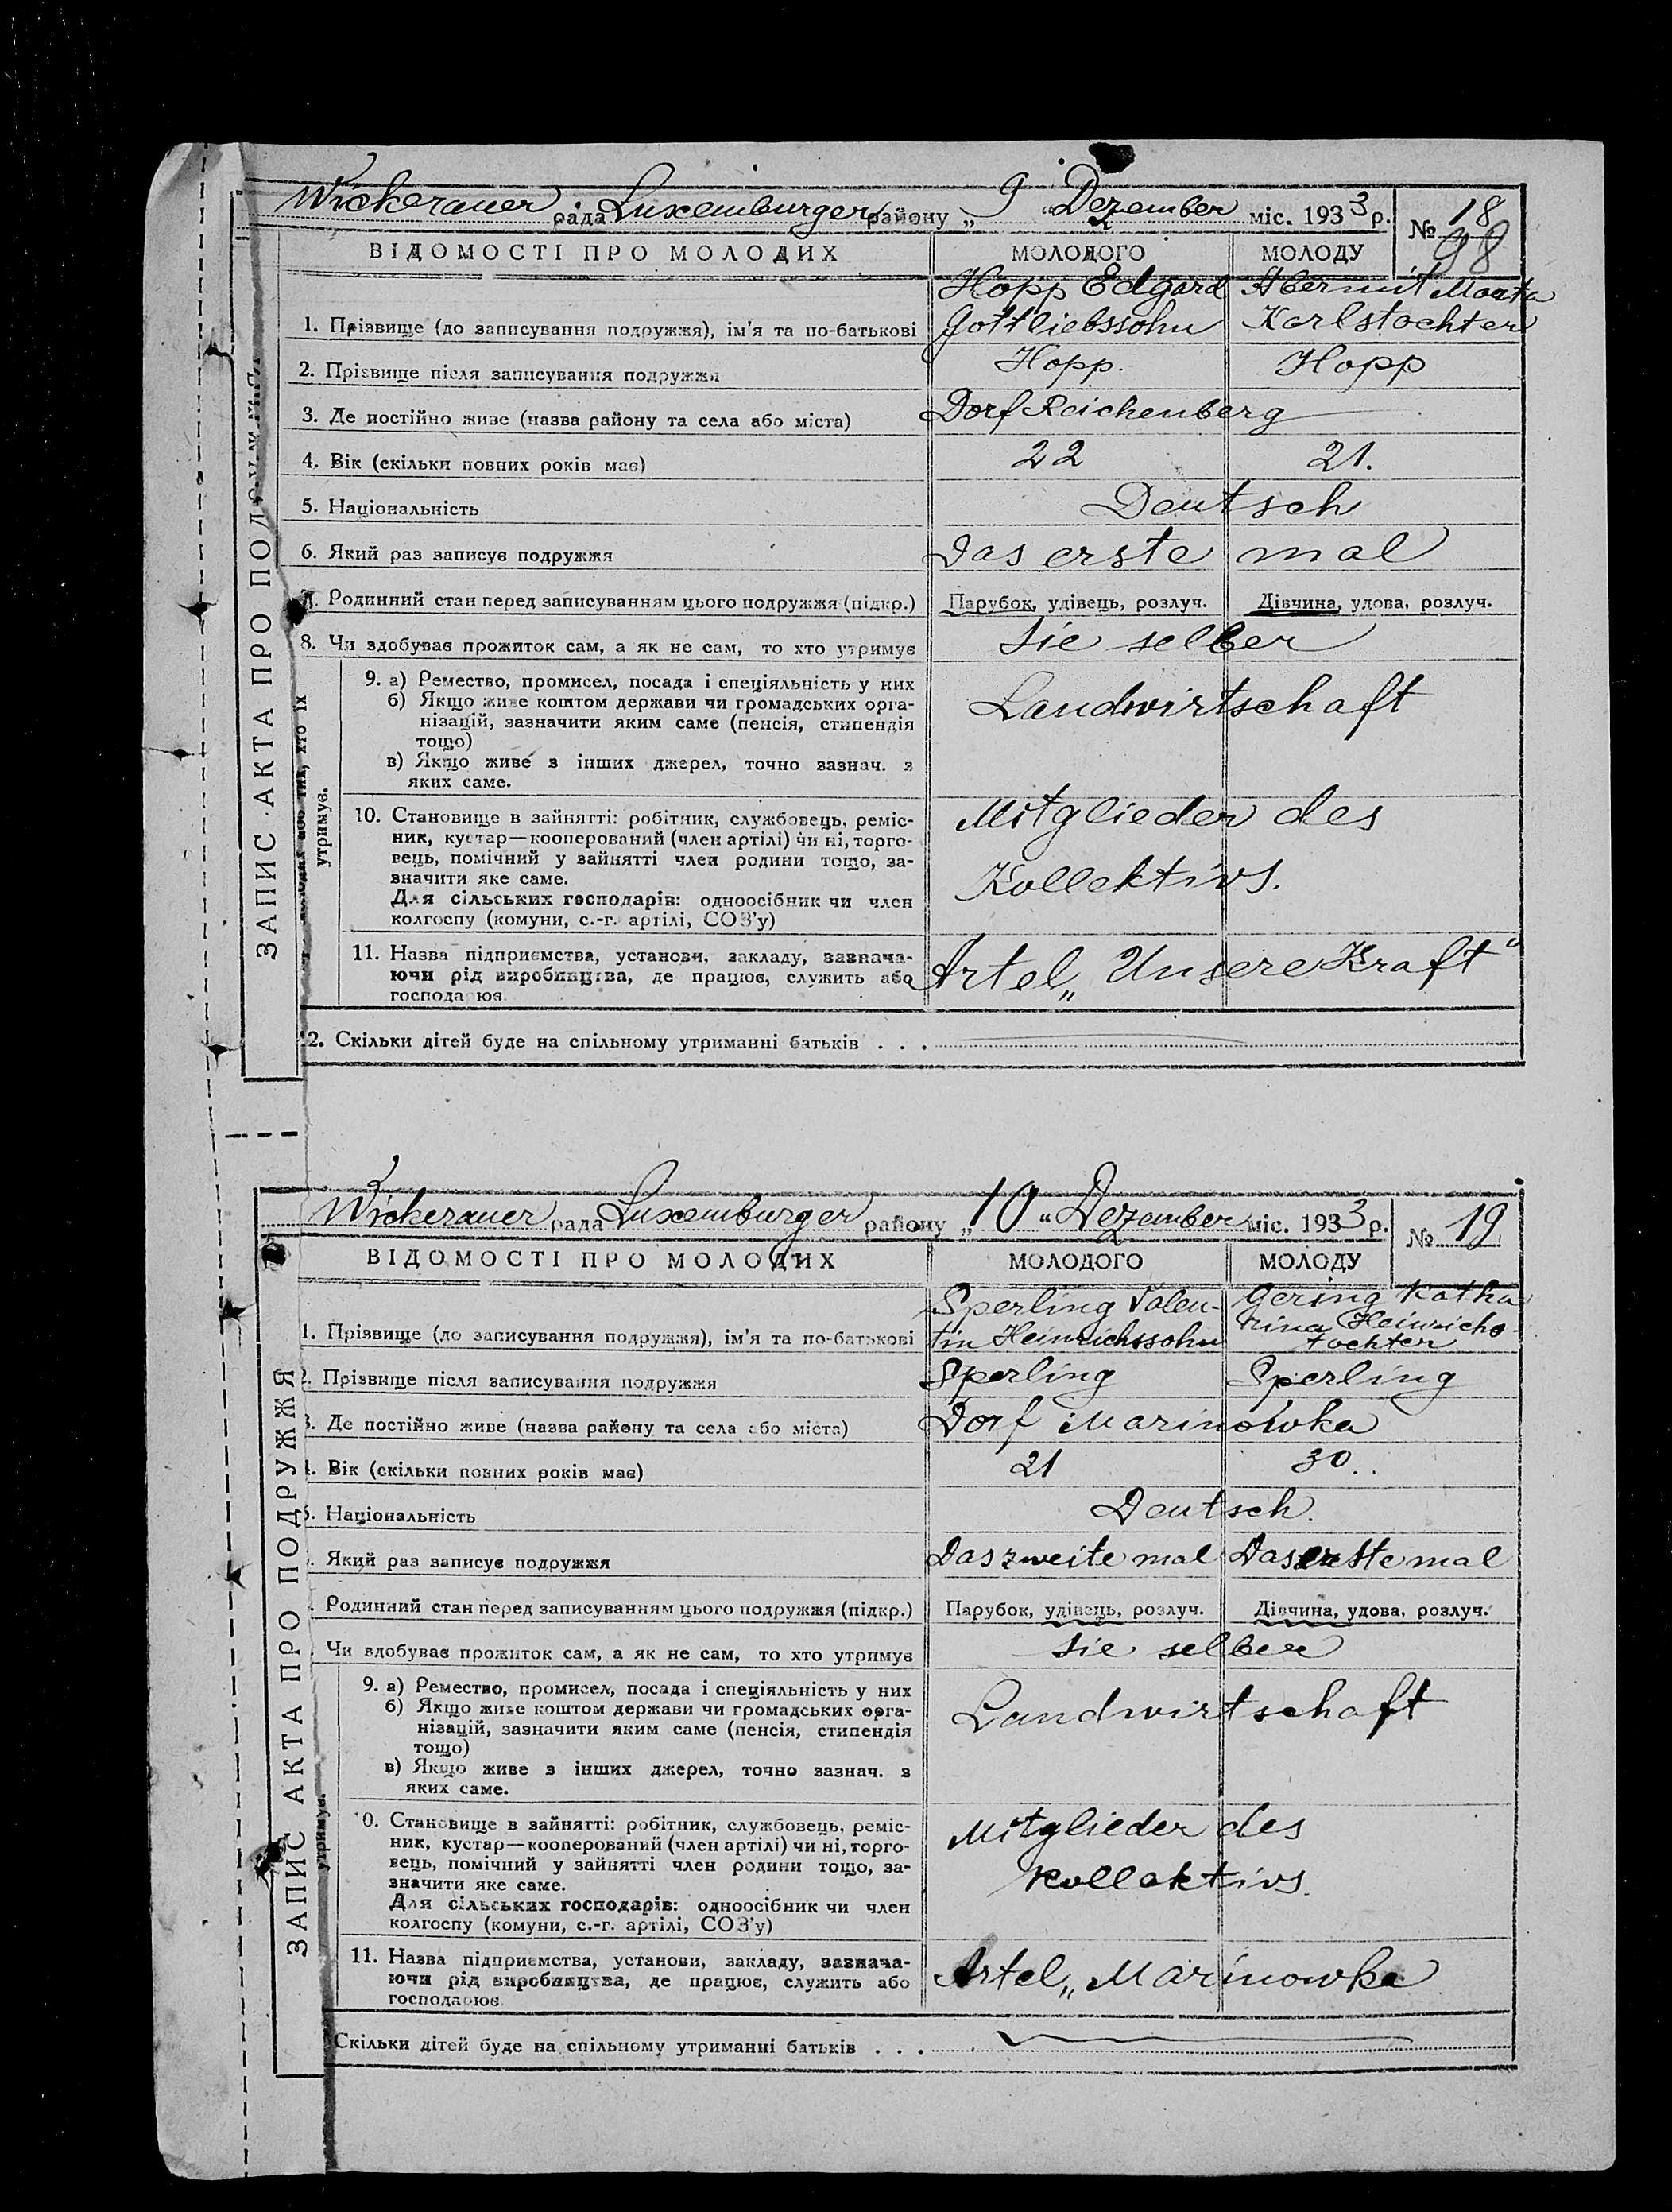 Wickerauer рада Luxemburger району „ 9 “ Dezember міс. 1933 р. № 18
98
ВІДОМОСТІ ПРО МОЛОДИХ МОЛОДОГО МОЛОДУ
Hopp Edgard
1. Прізвище (до записування подружжя), ім’я та по-батькові Gottliebssohn Karlstochter
2. Прізвище після записування подружжя Hopp. Hopp
3. Де постійно живе (назва району та села або міста) Dorf Reichenberg
4. Вік (скільки повних років має) 22 21.
5. Національність Deutsch
6. Який раз записує подружжя Das erste mal
7. Родинний стан перед записуванням цього подружжя (підкр.) Парубок, удівець, розлуч. Дівчина, удова, розлуч.
8. Чи здобуває прожиток сам, а як не сам, то хто утримує Sie selber
9. а) Ремество, промисел, посада і спеціяльність у них Landwirtschaft
б) Якщо живе коштом держави чи громадських орга-
нізацій, зазначити яким саме (пенсія, стипендія
тощо)
в) Якщо живе з інших джерел, точно зазнач. з
яких саме.
10. Становище в зайнятті: робітник, службовець, реміс- Mitglieder des
ник, кустар—кооперований (член артілі) чи ні, торго-
вець, помічний у зайнятті член родини тощо, за-
значити яке саме. Kollektivs.
Для сільських господарів: одноосібник чи член
колгоспу (комуни, с.-г. артілі, СОЗ’у)
11. Назва підприємства, установи, закладу, зазнача- Artel „Unsere Kraft“
ючи рід виробництва, де працює, служить або
господарює
12. Скільки дітей буде на спільному утриманні батьків . . .
ЗАПИС АКТА ПРО
хто їх
утримує.
Wickerauer рада Luxemburger району „ 10 “ Dezember міс. 1933 р. № 19
ВІДОМОСТІ ПРО МОЛОДИХ МОЛОДОГО МОЛОДУ
Sperling Valen- Gering Katha
1. Прізвище (до записування подружжя), ім’я та по-батькові tin Heinrichssohn rina Heinrichs-
tochter
2. Прізвище після записування подружжя Sperling Sperling
3. Де постійно живе (назва району та села або міста) Dorf Marinowka
4. Вік (скільки повних років має) 21 30..
5. Національність Deutsch.
Який раз записує подружжя Das zweite mal Das erste mal
Родинний стан перед записуванням цього подружжя (підкр.) Парубок, удівець, розлуч. Дівчина, удова, розлуч.
Чи здобуває прожиток сам, а як не сам, то хто утримує Sie selber
9. а) Ремество, промисел, посада і спеціяльність у них Landwirtschaft
б) Якщо живе коштом держави чи громадських орга-
нізацій, зазначити яким саме (пенсія, стипендія
тощо)
в) Якщо живе з інших джерел, точно зазнач. з
яких саме.
0. Становище в зайнятті: робітник, службовець, реміс- Mitglieder des
ник, кустар—кооперований (член артілі) чи ні, торго-
вець, помічний у зайнятті член родини тощо, за-
значити яке саме. Kollektivs.
Для сільських господарів: одноосібник чи член
колгоспу (комуни, с.-г. артілі, СОЗ’у)
11. Назва підприємства, установи, закладу, зазнача- Artel „Marinowka
ючи рід виробництва, де працює, служить або
господарює
Скільки дітей буде на спільному утриманні батьків . . .
ЗАПИС АКТА ПРО ПОДРУЖЖЯ
утримує.